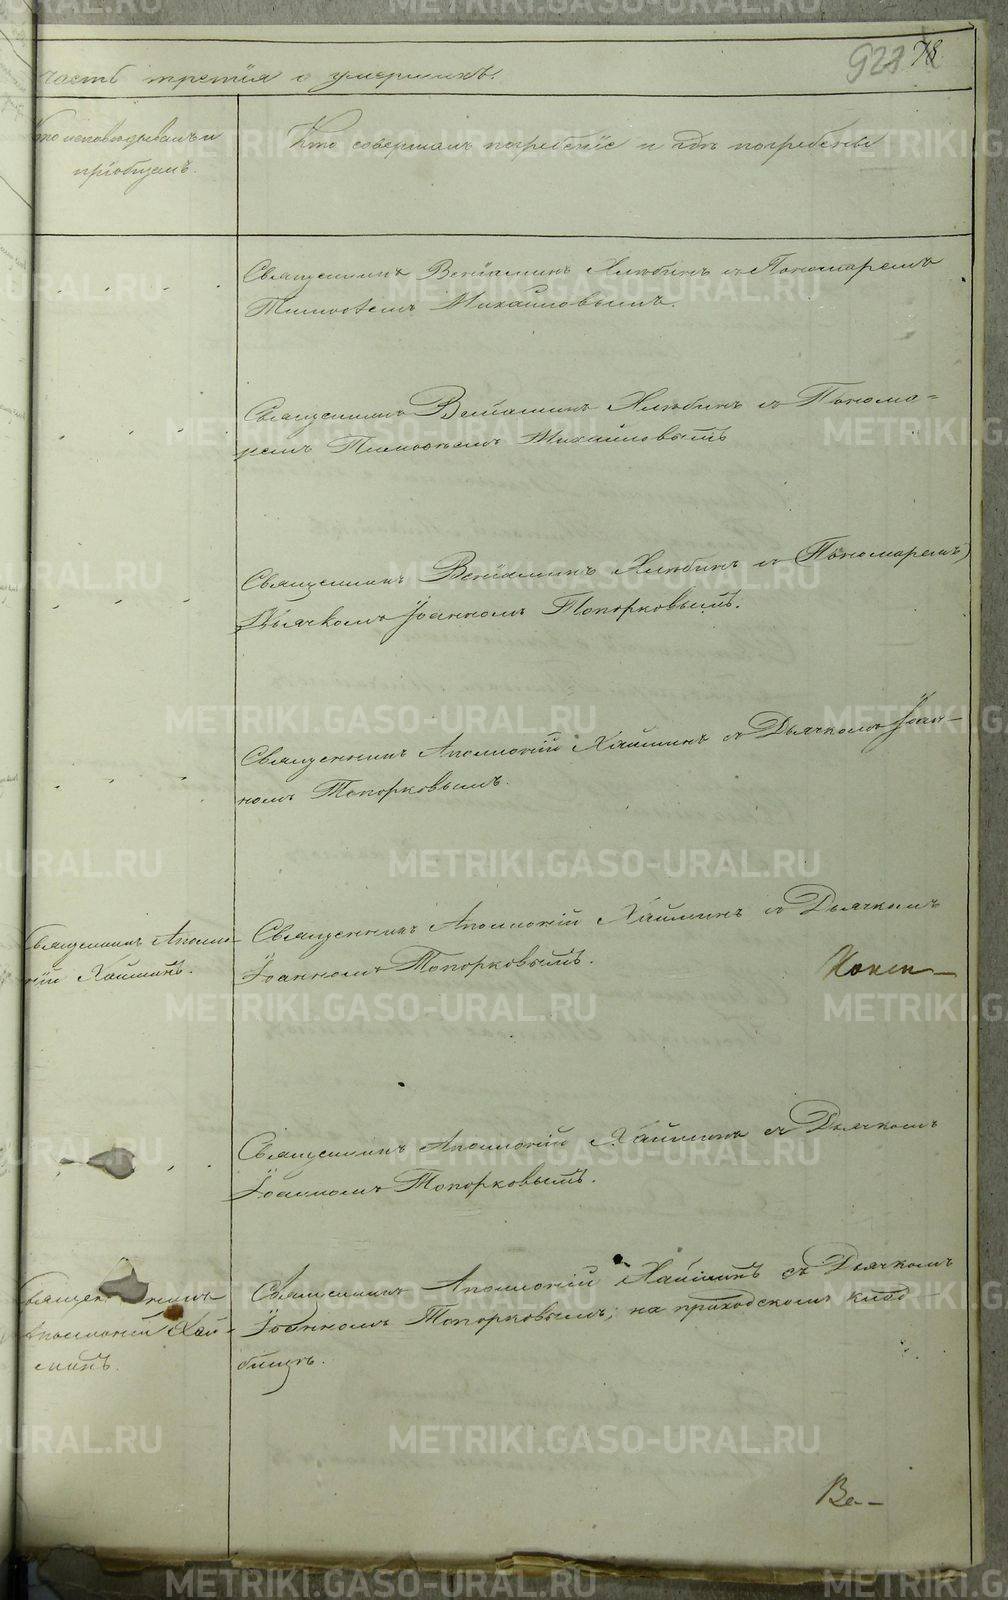 923 78
часть третія о умершихъ.
Кто исповѣдывалъ и
пріобщалъ.
Кто совершалъ погребеніе и гдѣ погребены
Священникъ Веніаминъ Хлѣбинъ съ Пономаремъ
Тимоѳеемъ Михайловымъ.
Священникъ Веніаминъ Хлѣбинъ съ Понома-
ремъ Тимоѳеемъ Михайловымъ
Священникъ Веніаминъ Хлѣбинъ съ (Пономаремъ)
Дьячкомъ Іоанномъ Топорковымъ.
Священникъ Аполлоній Хаймин съ Дьячкомъ Іоан-
номъ Топорковымъ.
Священникъ Аполло-
ній Хайминъ.
Священникъ Аполлоній Хайминъ съ Дьячкомъ
Іоанномъ Топорковымъ.
Священникъ Аполлоній Хайминъ съ Дьячкомъ
Іоанномъ Топорковымъ.
Священникъ
Аполлоній Хай-
минъ.
Священникъ Аполлоній Хайминъ съ Дьячкомъ
Іоанномъ Топорковымъ; на приходскомъ клад-
бищѣ.
Ве-
METRIKI.GASO-URAL.RU